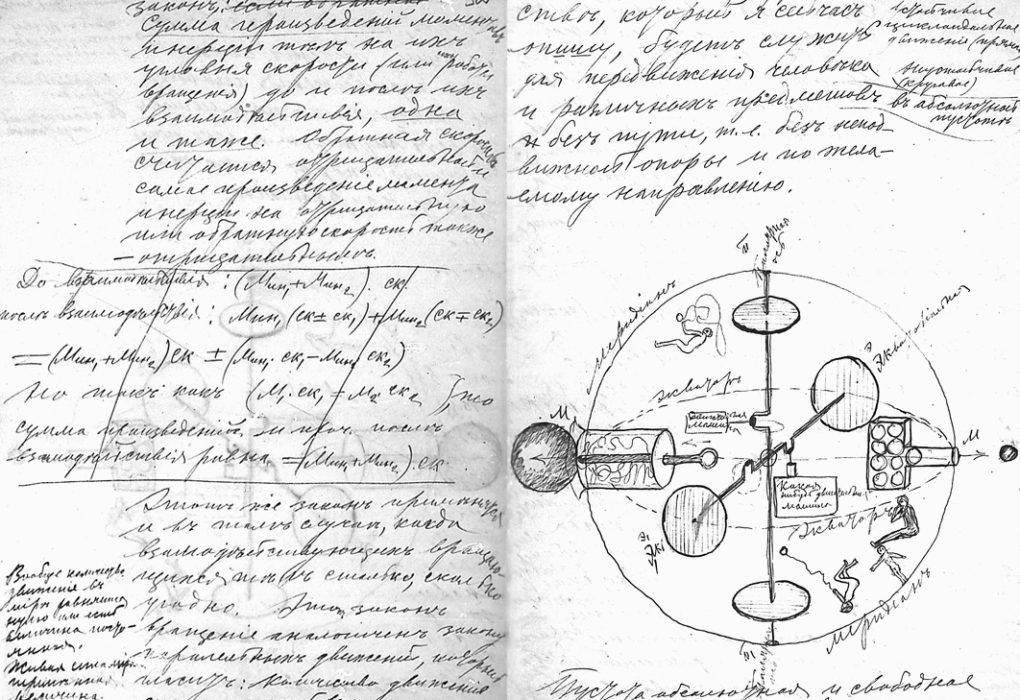 законъ:
Сумма произведеній моментовъ
инерціи тѣлъ на ихъ
угловыя скорости (или
вращенія) до и послѣ ихъ
взаимодѣйствія, одна
и таже. Обратная скорость
считается отрицательной и
самое произведеніе момента
инерціи на отрицательную
или обратную скорость также
– отрицательнымъ.
До взаимодѣйствія : (Мин₁+Мин₂). ск.
послѣ взаимодѣйствія : Мин₁(ск±ск₁)+Мин₂(ск∓ск₂)
=(Мин₁+Мин₂)ск ± (Мин₁ ск₁-Мин₂ ск₂)
Но такъ какъ (М₁ск₁ - М₂ск₂ ), то
сумма произведеній и проч. послѣ
взаимодѣйствія равна =(Мин₁+Мин₂).ск.
Этотъ же законъ примѣняется
и въ томъ случаѣ, когда
взаимодѣйствующихъ вращаю-
щихся тѣлъ столько, сколько
угодно. Этотъ законъ
вращенія аналогиченъ закону
паралельныхъ движеній, который
гласитъ: Количество движенія
Вообще количество
движенія въ
мірѣ равняется
нулю или есть
величина посто-
янная.
Живая сила
величина.
ство, который я сейчасъ
опишу, будетъ служить
для передвиженія человѣка
и различныхъ предметовъ
безъ пути, т.е. безъ непод-
вижной опоры и по жела-
емому направленію.
движеніе
Неустойчивое
(круговое)
въ абсолютной
пустотѣ
меридіанъ
экваторъ
машина
М
Э
М
Какая
нибудь
машина
Экваторъ
Э₁
меридіанъ
Пустота абсолютная и свободная